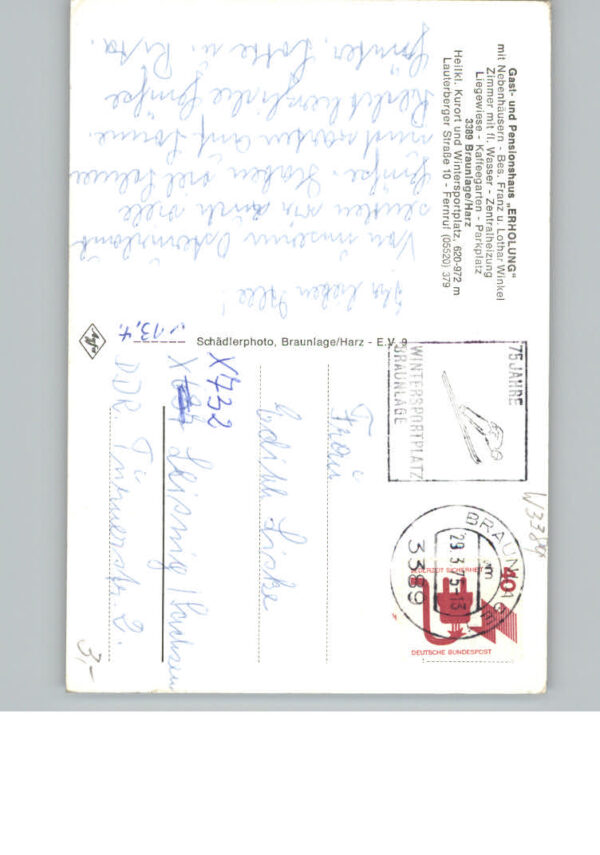 Gast- und Pensionshaus „ERHOLUNG“
mit Nebenhäusern - Bes. Franz u. Lothar Winkel
Zimmer mit fl. Wasser - Zentralheizung
Liegewiese - Kaffeegarten - Parkplatz
3389 Braunlage/Harz
Heilkl. Kurort und Wintersportplatz, 620-972 m
Lauterberger Straße 10 - Fernruf (05520) 379
Ihr lieben Alle!
Von unserm Osterurlaub
senden wir Euch viele
Grüße. Haben viel Schnee
und warten auf Sonne.
Recht herzliche Grüße
Günter, Lotte u. Rita.
v 13,4.
Schädlerphoto, Braunlage/Harz - E.V. 9
Agfa
75 JAHRE
WINTERSPORTPLATZ
BRAUNLAGE
BRAUNLAGE
29.3.75-13
3389
40
JEDERZEIT SICHERHEIT
DEUTSCHE BUNDESPOST
W3389
Frau
Edith Liske
X732
Leisnig / Sachsen
DDR. Türmerstr. 2.
3,-